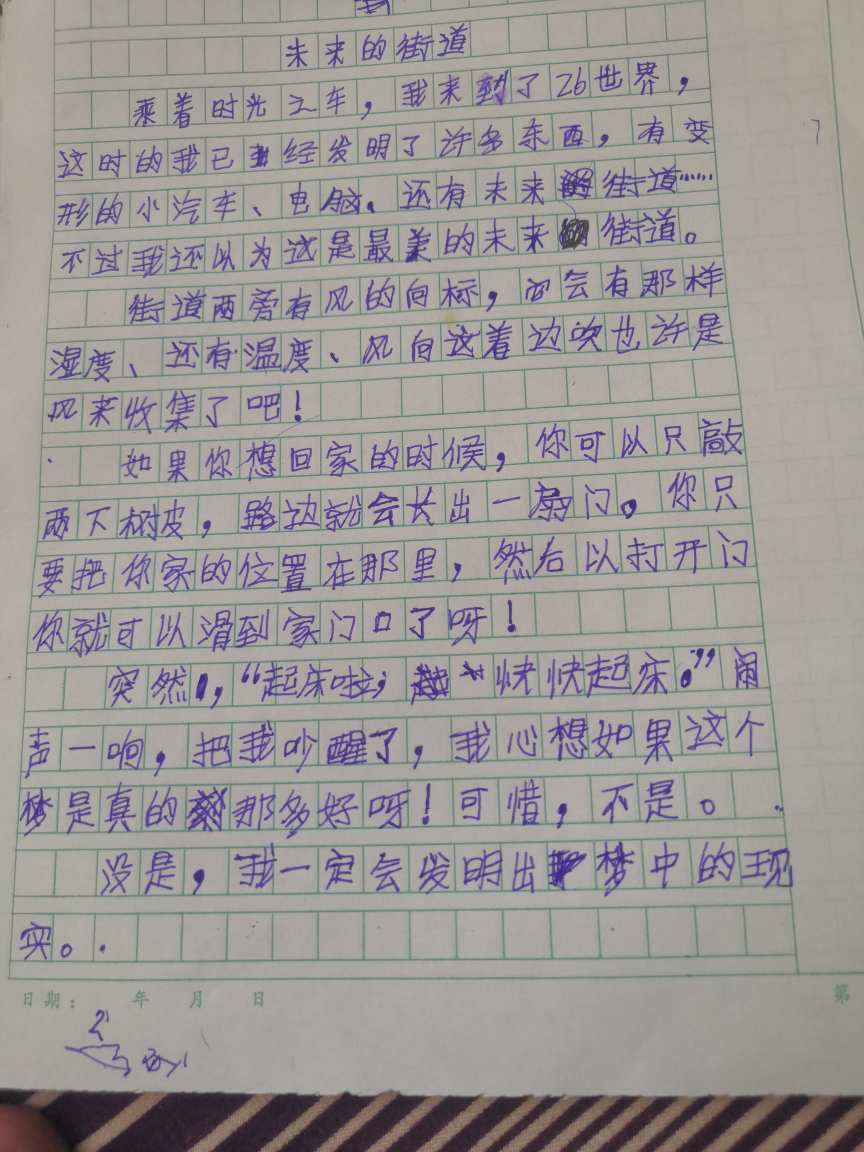 未来的街道
乘着时光之车，我来到了26世界，
这时的我已经发明了许多东西，有变
形的小汽车、电脑、还有未来街道……
不过我还以为这是最美的未来街道。
街道两旁有风的向标，会有那样
湿度、还有温度、风向这着边吹也许是
风来收集了吧！
如果你想回家的时候，你可以只敲
两下树皮，路边就会长出一扇门。你只
要把你家的位置在那里，然后以打开门
你就可以滑到家门口了呀！
突然，“起床啦，快快起床。”闹
声一响，把我吵醒了，我心想如果这个
梦是真的那多好呀！可惜，不是。
没是，我一定会发明出梦中的现
实。
日期： 年 月 日
第